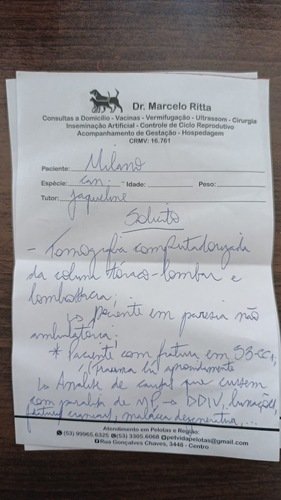 Dr. Marcelo Ritta
Consultas a Domicílio - Vacinas - Vermifugação - Ultrassom - Cirurgia
Inseminação Artificial - Controle de Ciclo Reprodutivo
Acompanhamento de Gestação - Hospedagem
CRMV: 16.761
Paciente: Milano
Espécie: can. Idade: Peso:
Tutor: Jaqueline
Solicito
- Tomografia computadorizada
da coluna tóraco-lombar e
lombossacra;
↳ Paciente em paresia não
ambulatória;
* Paciente com fratura em S3-CC1,
↳ Analise de causas que cursem
com paralisia de MP → DDIV, luxações,
, malácia degenerativa...
Atendimento em Pelotas e Região:
(53) 99965.6325 (53) 3305.6068 @petvidapelotas@gmail.com
Rua Gonçalves Chaves, 3448 - Centro